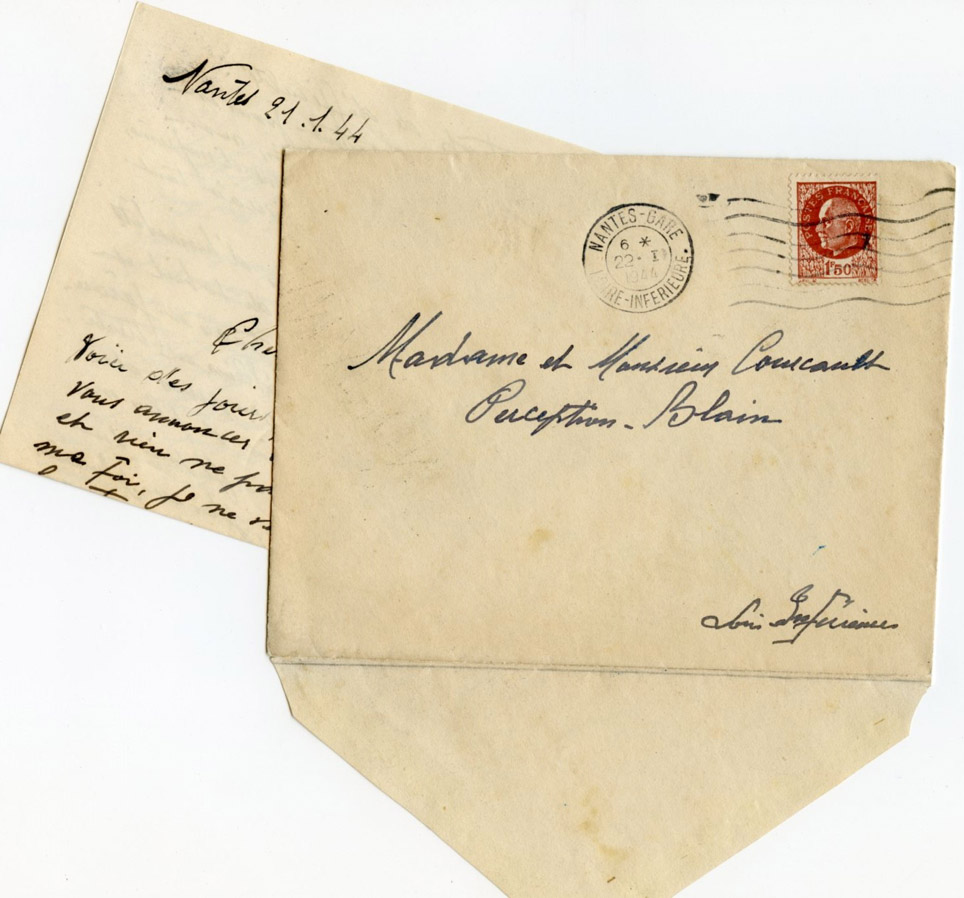 Nantes 21.1.44
Voici des jours
vous annoncer
et rien ne
ma Foi, je ne
NANTES-GARE
6 *
22 - I
1944
LOIRE-INFERIEURE
POSTES FRANÇAISES
1F50
Madame et Monsieur Courcault
Perception - Blain
Loire Inférieure